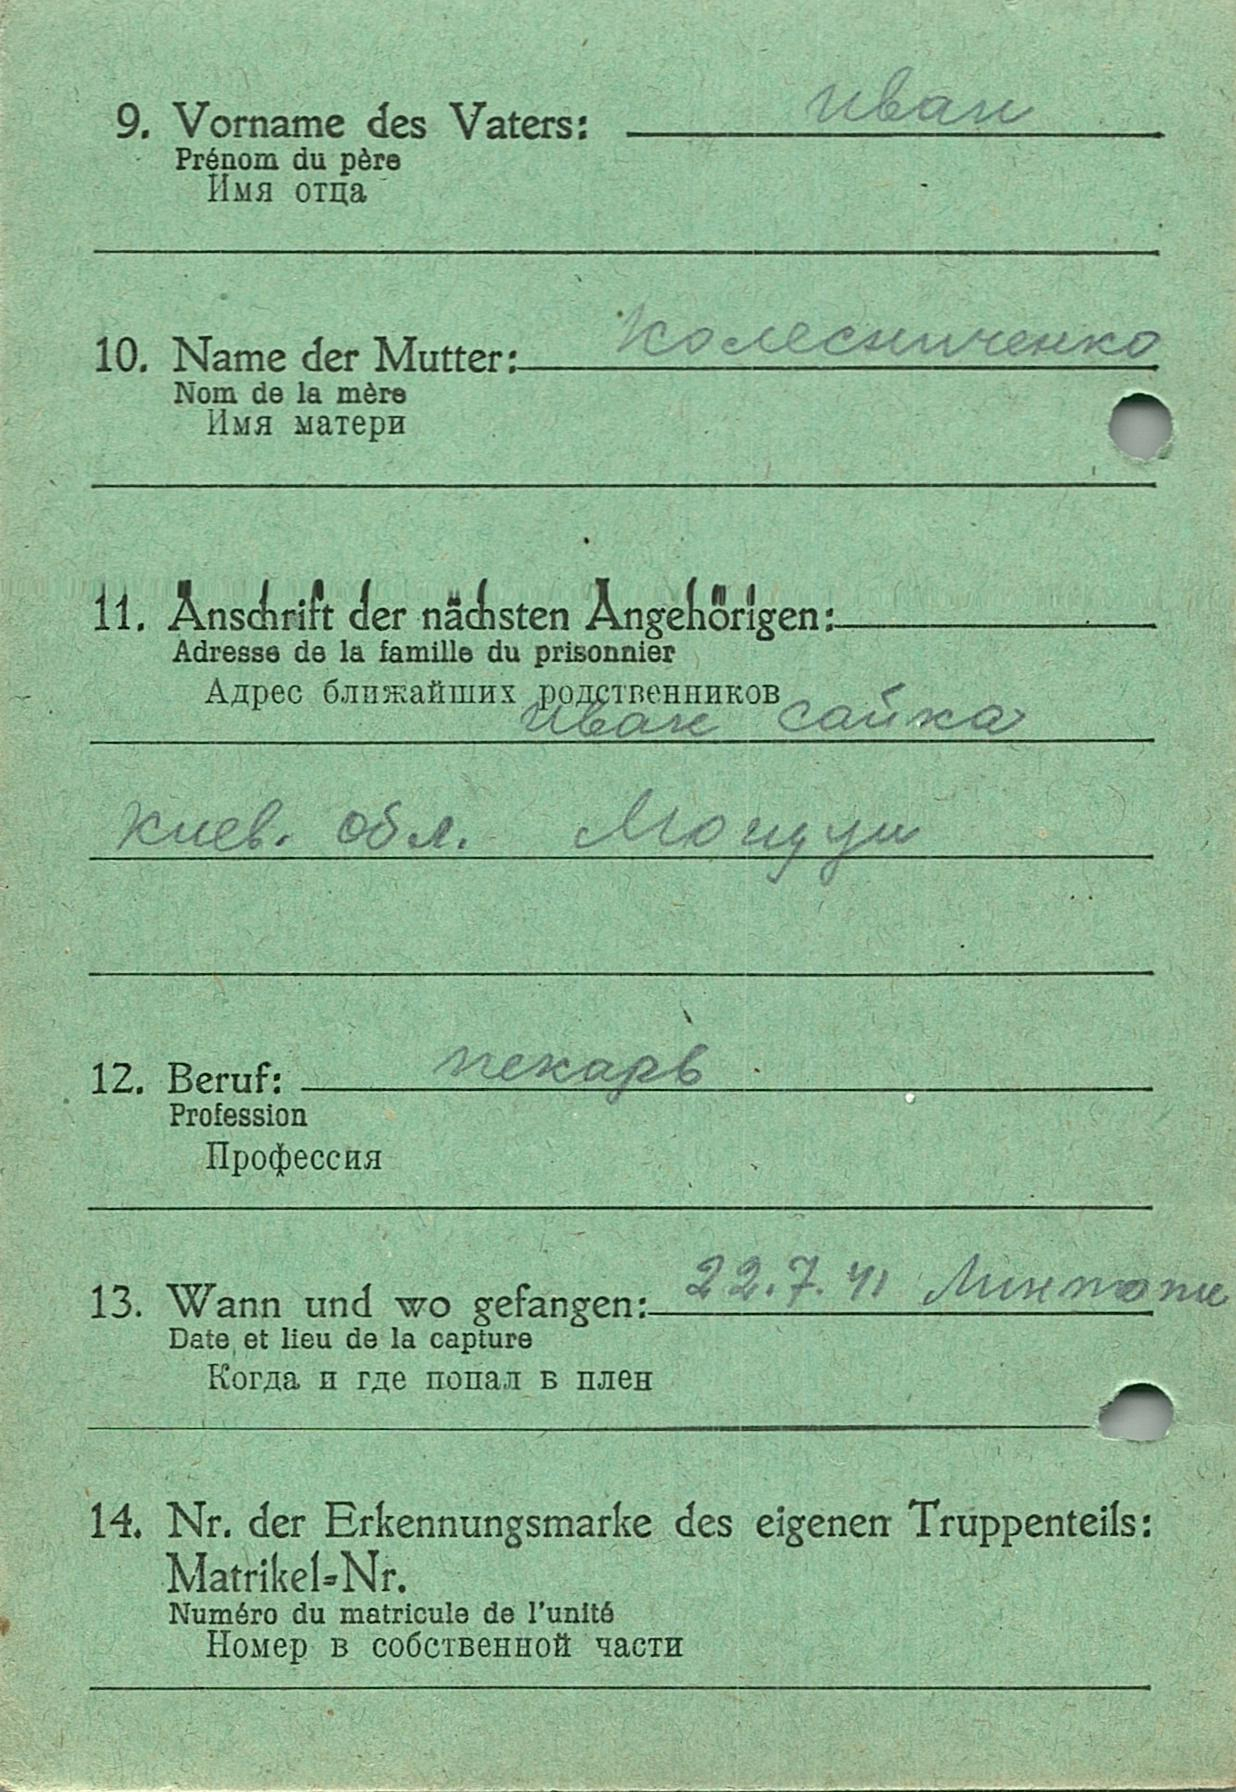 9. Vorname des Vaters: Иван
Prénom du père
Имя отца
10. Name der Mutter: Колесниченко
Nom de la mère
Имя матери
11. Anschrift der nächsten Angehörigen:
Adresse de la famille du prisonnier
Адрес ближайших родственников
Иван Сайка
Киев. обл.
12. Beruf: пекарь
Profession
Профессия
13. Wann und wo gefangen: 22.7.41
Date et lieu de la capture
Когда и где попал в плен
14. Nr. der Erkennungsmarke des eigenen Truppenteils:
Matrikel-Nr.
Numéro du matricule de l'unité
Номер в собственной части